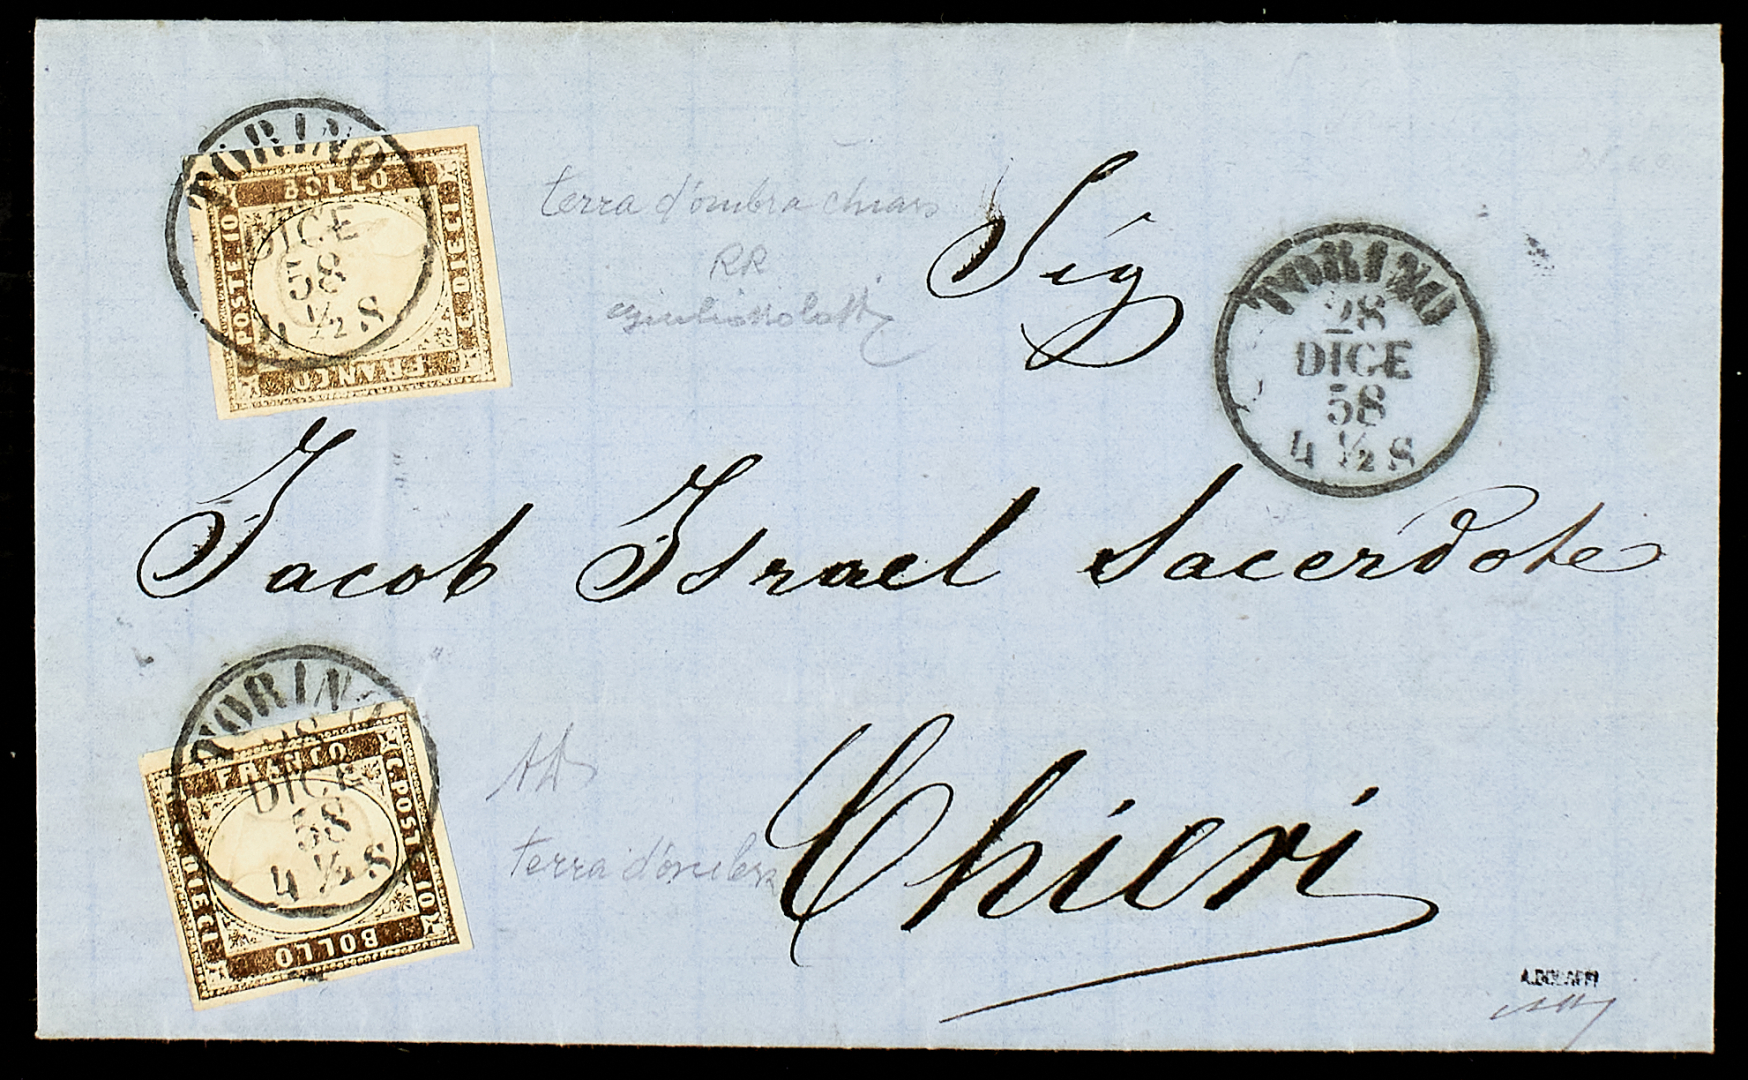 TORINO
BOLLO
POSTE 10
C. DIECI
FRANCO
DICE
58
4 ½ S
terra d'ombra chiaro
RR
Sig
TORINO
28
DICE
58
4 ½ S
Jacob Israel Sacerdote
TORINO
28
DICE
58
4 ½ S
FRANCO
C. POSTE 10
DIECI
BOLLO
terra d'ombra
Chieri
A.BOLAFFI